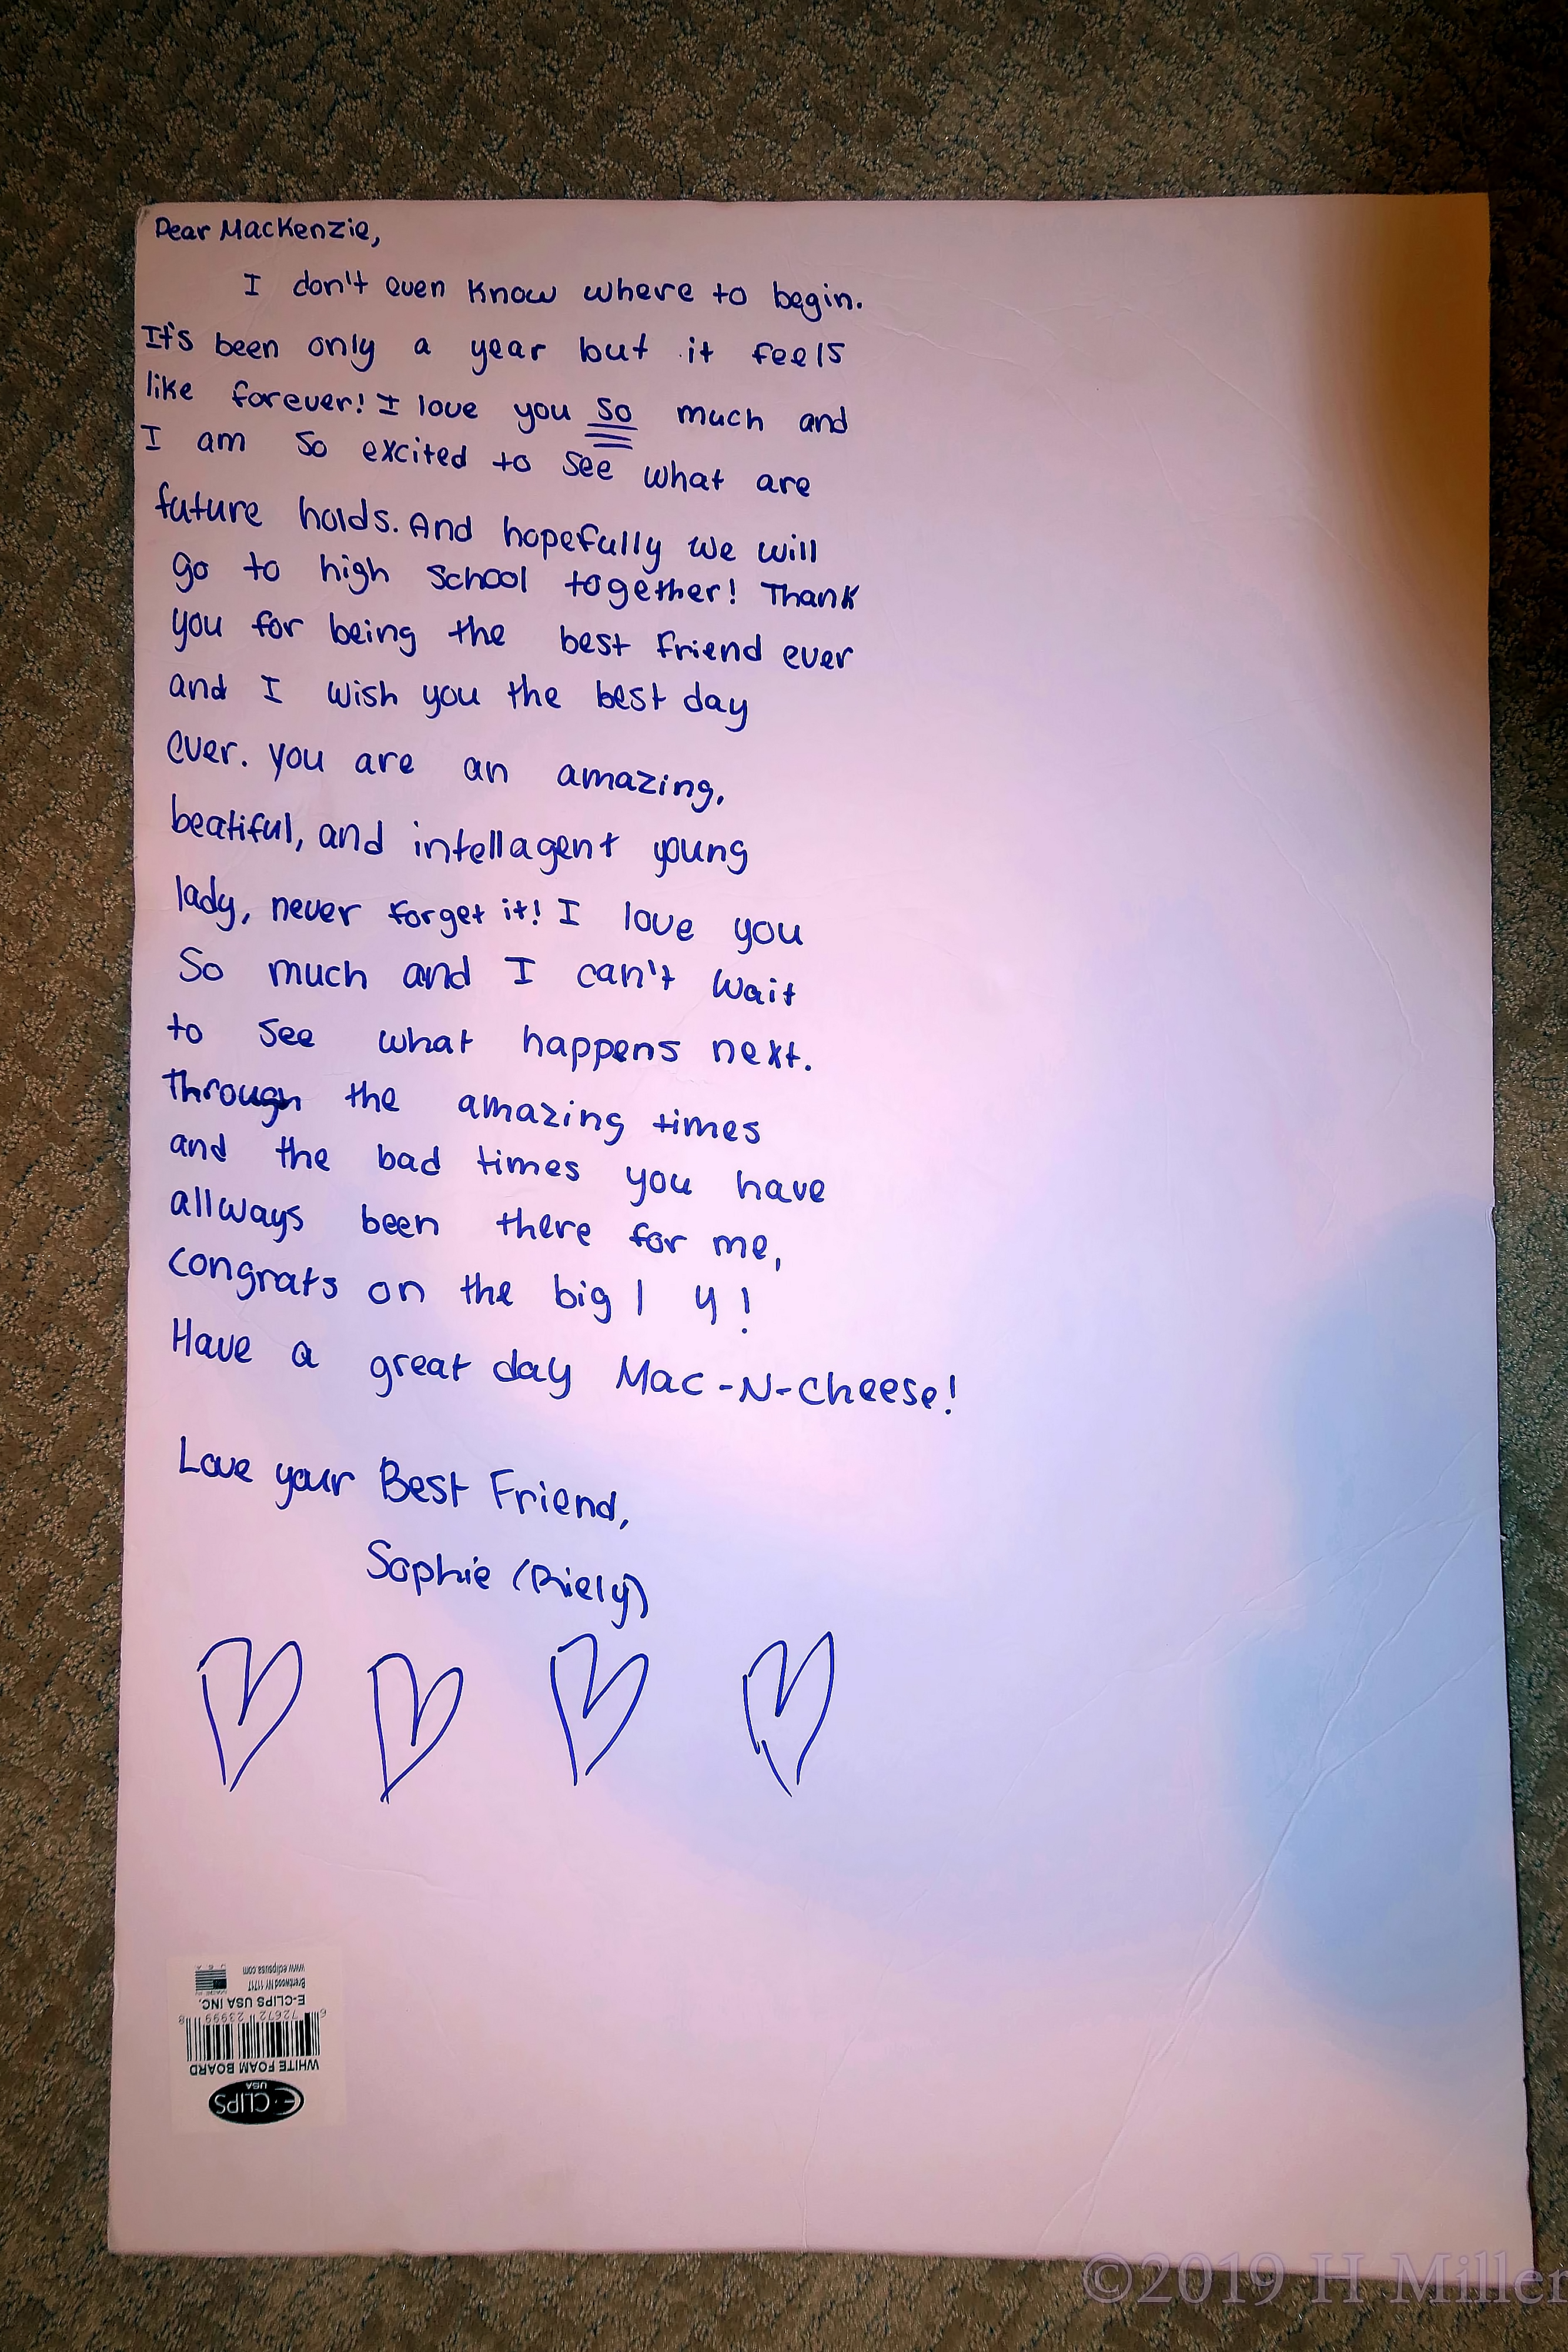 Dear Mackenzie,
I don't even know where to begin.
It's been only a year but it feels
like forever! I love you so much and
I am so excited to see what are
future holds. And hopefully we will
go to high school together! Thank
you for being the best friend ever
and I wish you the best day
ever. you are an amazing,
beatiful, and intellagent young
lady, never forget it! I love you
so much and I can't wait
to see what happens next.
through the amazing times
and the bad times you have
allways been there for me,
congrats on the big 14!
Have a great day Mac-N-Cheese!
Love your Best Friend,
Sophie (Riely)
E-CLIPS
USA
WHITE FOAM BOARD
6 72672 23999 8
E-CLIPS USA INC.
Brentwood NY 11717
www.eclipsusa.com
©2019 H Miller